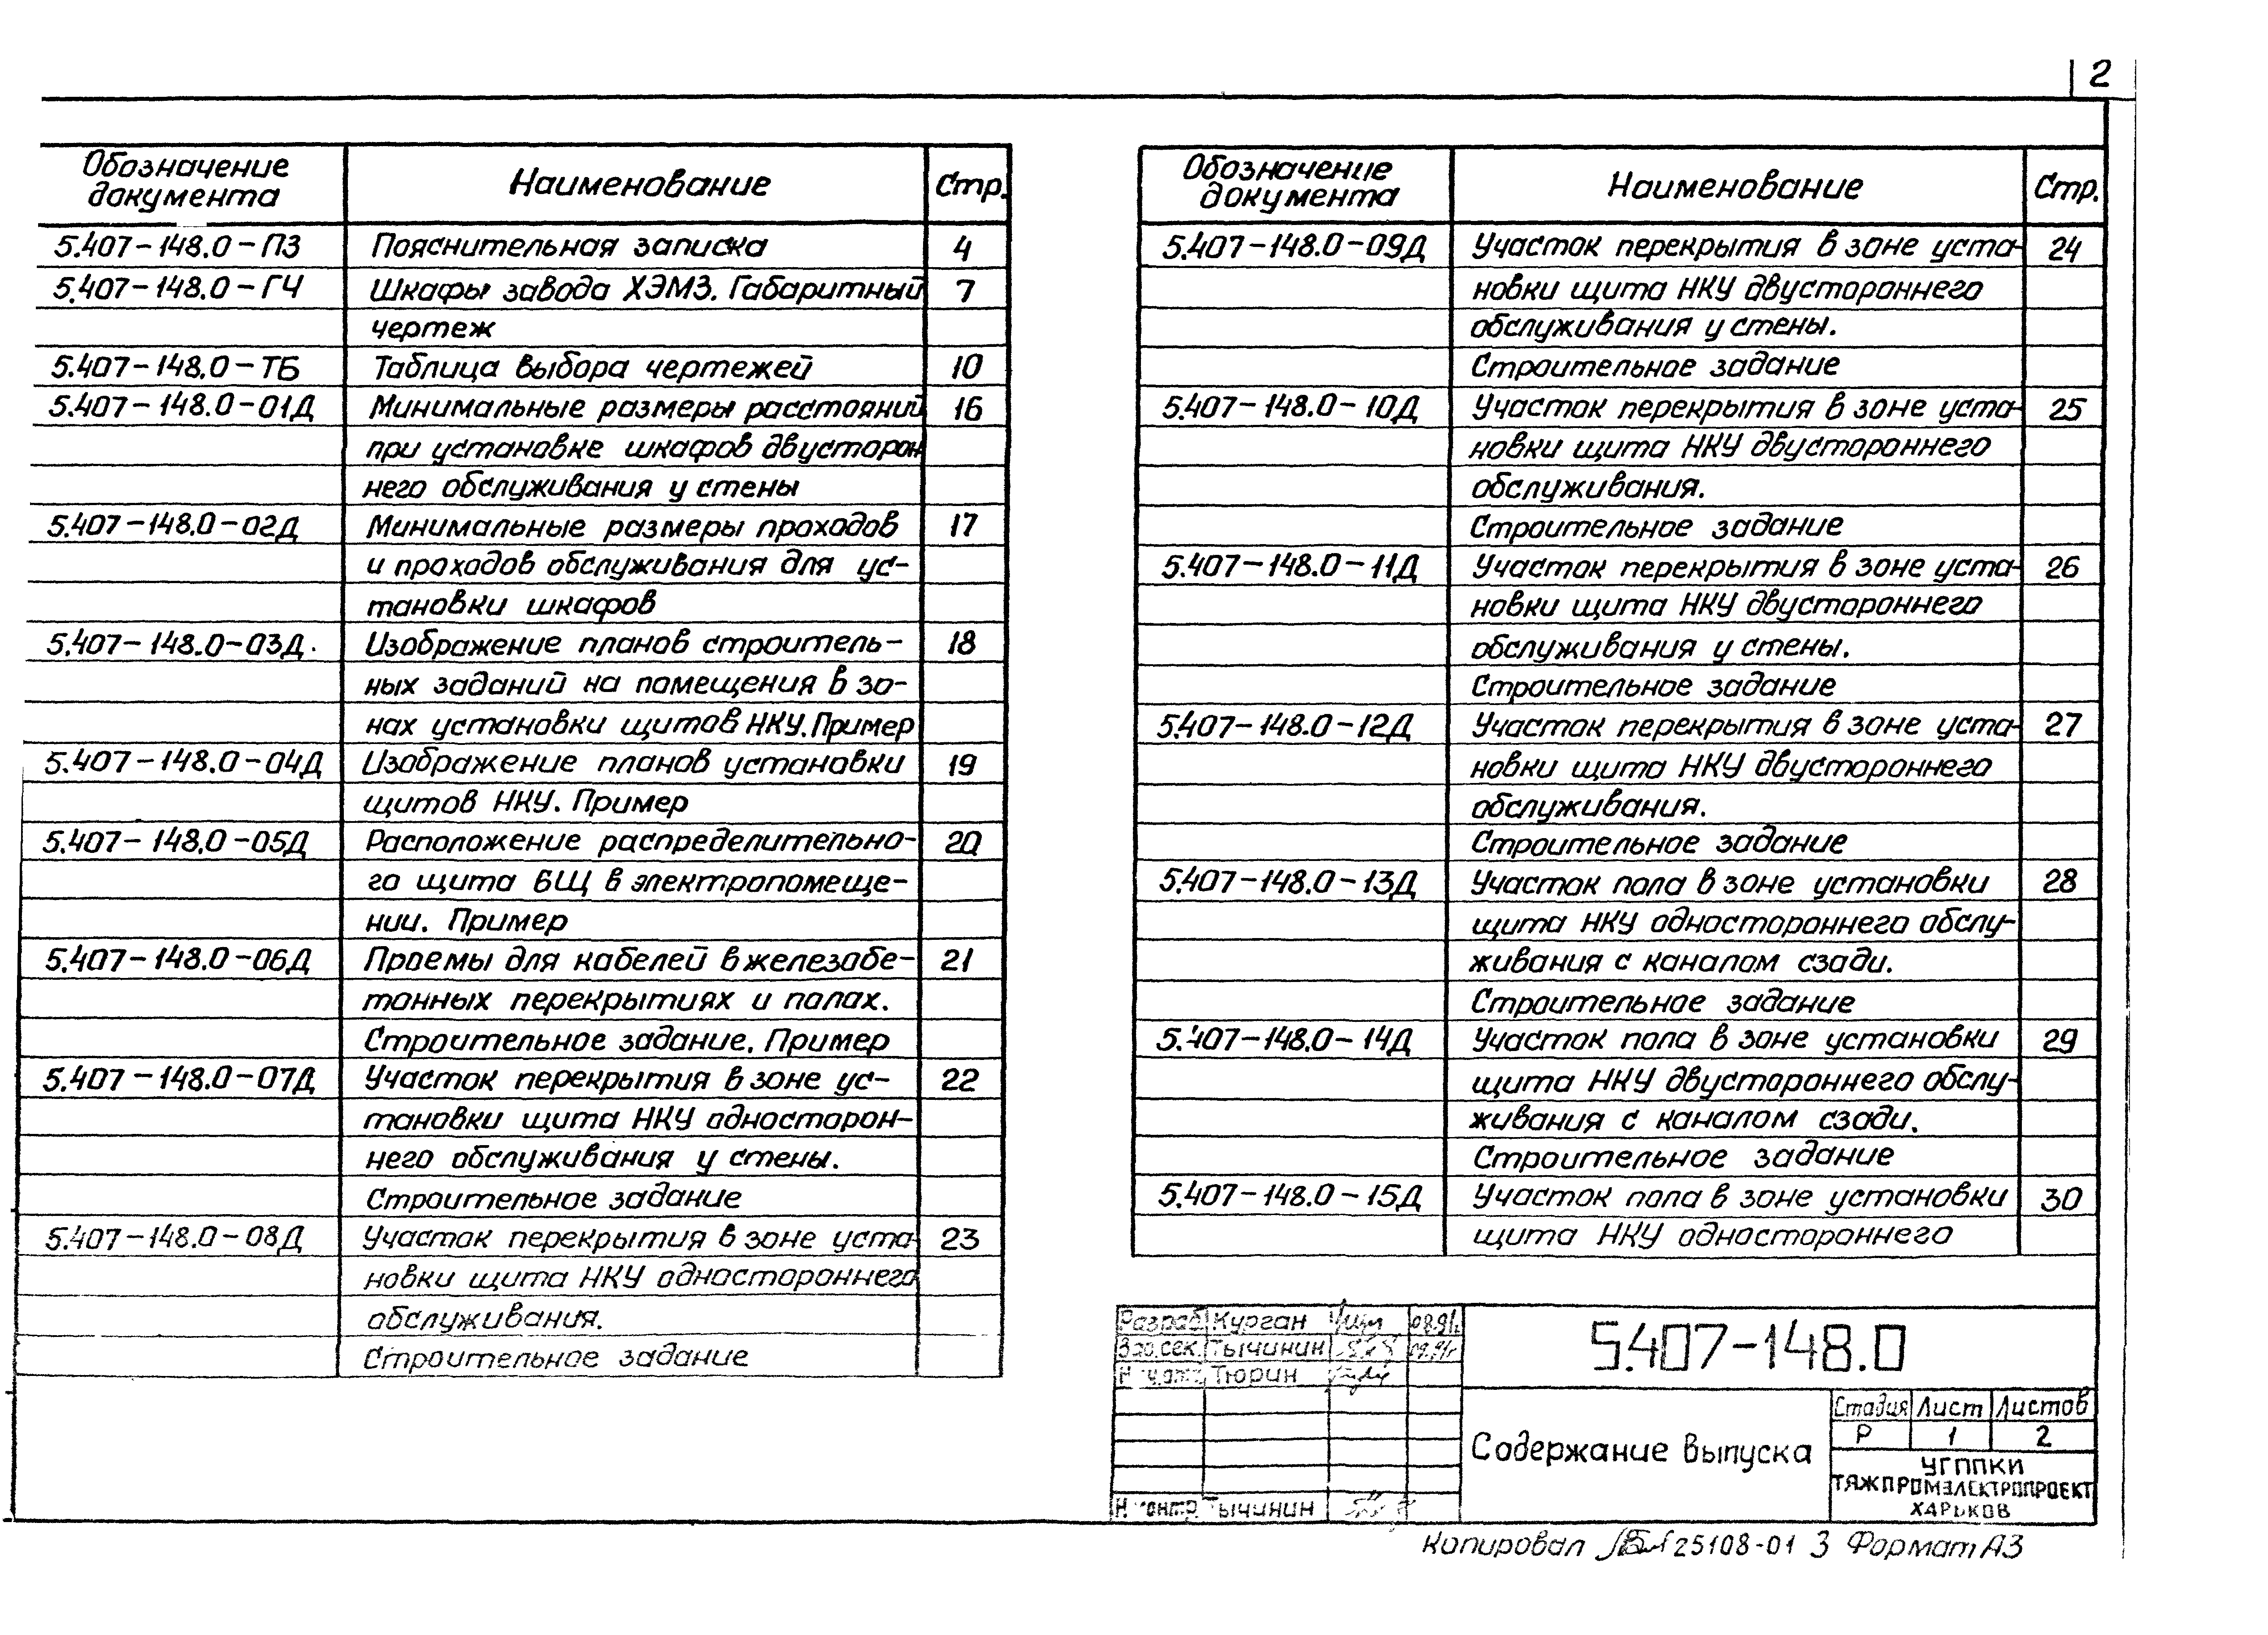 2
Обозначение документа Наименование Стр.
5.407-148.0-ПЗ Пояснительная записка 4
5.407-148.0-ГЧ Шкафы завода ХЭМЗ. Габаритный 7
чертеж
5.407-148.0-ТБ Таблица выбора чертежей 10
5.407-148.0-01Д Минимальные размеры расстояний 16
при установке шкафов двусторон-
него обслуживания у стены
5.407-148.0-02Д Минимальные размеры проходов 17
и проходов обслуживания для ус-
тановки шкафов
5.407-148.0-03Д Изображение планов строитель- 18
ных заданий на помещения в зо-
нах установки щитов НКУ. Пример
5.407-148.0-04Д Изображение планов установки 19
щитов НКУ. Пример
5.407-148.0-05Д Расположение распределительно- 20
го щита БЩ в электропомеще-
нии. Пример
5.407-148.0-06Д Проемы для кабелей в железобе- 21
тонных перекрытиях и полах.
Строительное задание. Пример
5.407-148.0-07Д Участок перекрытия в зоне ус- 22
тановки щита НКУ односторон-
него обслуживания у стены.
Строительное задание
5.407-148.0-08Д Участок перекрытия в зоне уста- 23
новки щита НКУ одностороннего
обслуживания.
Строительное задание
Обозначение документа Наименование Стр.
5.407-148.0-09Д Участок перекрытия в зоне уста- 24
новки щита НКУ двустороннего
обслуживания у стены.
Строительное задание
5.407-148.0-10Д Участок перекрытия в зоне уста- 25
новки щита НКУ двустороннего
обслуживания.
Строительное задание
5.407-148.0-11Д Участок перекрытия в зоне уста- 26
новки щита НКУ двустороннего
обслуживания у стены.
Строительное задание
5.407-148.0-12Д Участок перекрытия в зоне уста- 27
новки щита НКУ двустороннего
обслуживания.
Строительное задание
5.407-148.0-13Д Участок пола в зоне установки 28
щита НКУ одностороннего обслу-
живания с каналом сзади.
Строительное задание
5.407-148.0-14Д Участок пола в зоне установки 29
щита НКУ двустороннего обслу-
живания с каналом сзади.
Строительное задание
5.407-148.0-15Д Участок пола в зоне установки 30
щита НКУ одностороннего
Разраб. Курган 08.91г.
Зав.сек. Тычинин 09.91г
Тюрин
Н.контр. Тычинин
5.407-148.0
Содержание выпуска
Стадия Лист Листов
Р 1 2
УГППКИ
ТЯЖПРОМЭЛЕКТРОПРОЕКТ
ХАРЬКОВ
Копировал 25108-01 3 Формат А3